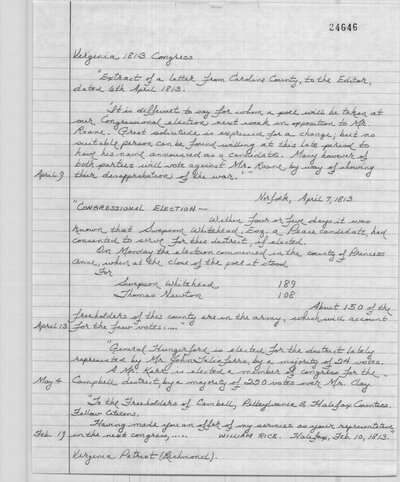 24646
Virginia 1813 Congress
"Extract of a letter from Caroline County, to the Editor,
dated 6th April 1813.
'It is difficult to say for whom a poll will be taken at
our Congressional election next week in opposition to Mr.
Roane. Great solicitude is expressed for a change, but no
suitable person can be found willing at this late period to
have his name announced as a candidate. Many however of
both parties will vote against Mr. Roane by way of showing
April 9 their disapprobation of the war.'"
Norfolk, April 7, 1813
"CONGRESSIONAL ELECTION—
Within four or five days it was
known that Simpson Whitehead, Esq. a Peace candidate, had
consented to serve for this district, if elected.
On Monday the election commenced in the county of Princess
Anne, when at the close of the poll it stood
For
Simpson Whitehead 189
Thomas Newton 108
About 150 of the
freeholders of this county are in the army, which will account
April 13 for the few votes....."
"General Hungerford is elected for the district lately
represented by Mr. John Taliaferro, by a majority of 24 votes.
A Mr. Kerr is elected a member of congress for the
May 4 Campbell district, by a majority of 250 votes over Mr. Clay.
"To the Freeholders of Cambell, Pittsylvania & Halifax Counties.
Fellow Citizens.
Having made you an offer of my services as your representative
Feb. 19 in the next congress,..... WILLIAM RICE. Halifax, Feb. 10, 1813.
Virginia Patriot (Richmond).